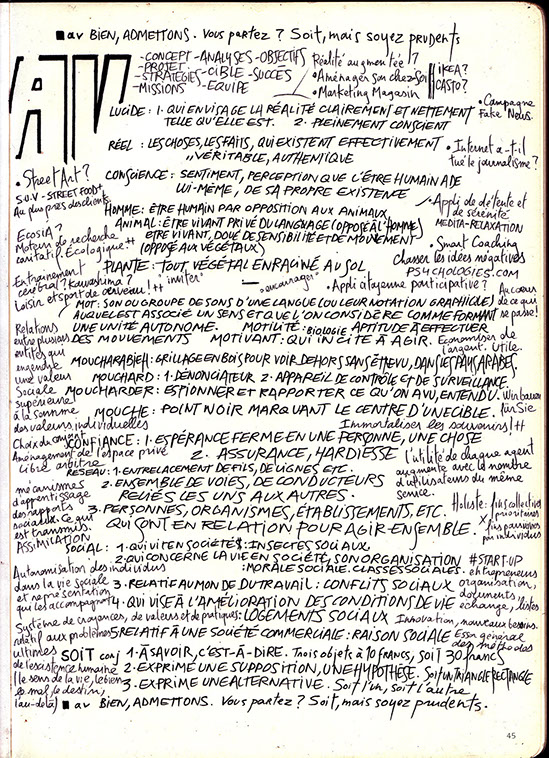 ■ av BIEN, ADMETTONS. Vous partez ? Soit, mais soyez prudents
-CONCEPT-ANALYSES-OBJECTIFS
-PROJET
-STRATÉGIES-CIBLE-SUCCÈS
-MISSIONS -EQUIPE
Réalité augmentée ?
• Aménager son chez soi
• Marketing Magasin
IKEA ?
CASTO ?
LUCIDE : 1. QUI ENVISAGE LA RÉALITÉ CLAIREMENT ET NETTEMENT
TELLE QU'ELLE EST. 2. PLEINEMENT CONSCIENT
• Campagne
Fake News.
RÉEL : LES CHOSES, LES FAITS, QUI EXISTENT EFFECTIVEMENT
VÉRITABLE, AUTHENTIQUE
• Internet a-t-il
tué le journalisme ?
• Street Art ?
S.O.V - STREET FOOD +
Au plus près des clients.
CONSCIENCE : SENTIMENT, PERCEPTION QUE L'ÊTRE HUMAIN A DE
LUI-MÊME, DE SA PROPRE EXISTENCE
HOMME : ÊTRE HUMAIN PAR OPPOSITION AUX ANIMAUX,
ANIMAL : ÊTRE VIVANT PRIVÉ DU LANGAGE (OPPOSÉ À L'HOMME)
ETRE VIVANT, DOUÉ DE SENSIBILITÉ ET DE MOUVEMENT
(OPPOSÉ AUX VÉGÉTAUX)
• Appli de détente et
de sérénité
MEDITA-RELAXATION
• Smart Coaching
Chasser les idées négatives
PSYCHOLOGIES.COM
ECOSIA ?
Moteur de recherche
caritatif. Ecologique ++
PLANTE : TOUT VÉGÉTAL ENRACINÉ AU SOL
Entraînement
cérébral ? Kawashima ?
Loisir et sport de cerveau ! ++
"inviter"
"encourager"
• Appli citoyenne participative ?
MOT : SON OU GROUPE DE SONS D'UNE LANGUE (OU LEUR NOTATION GRAPHIQUE)
AUQUEL EST ASSOCIÉ UN SENS ET QUE L'ON CONSIDÈRE COMME FORMANT
UNE UNITÉ AUTONOME. MOTILITÉ : BIOLOGIE APTITUDE À EFFECTUER
DES MOUVEMENTS MOTIVANT : QUI INCITE À AGIR.
Au cœur
de ce qui
se passe !
Economiser de
l'argent. Utile.
Relations
entre plusieurs
entités qui
engendre
une valeur
Sociale
supérieure
à la somme
des valeurs individuelles
MOUCHARABIEH : GRILLAGE EN BOIS POUR VOIR DEHORS SANS ÊTRE VU, DANS LES PAYS ARABES.
MOUCHARD : 1. DÉNONCIATEUR 2. APPAREIL DE CONTRÔLE ET DE SURVEILLANCE.
MOUCHARDER : ESPIONNER ET RAPPORTER CE QU'ON A VU, ENTENDU.
Wir bauen
für Sie
MOUCHE : POINT NOIR MARQUANT LE CENTRE D'UNE CIBLE.
Immortaliser les souvenirs ! ++
Aménagement de l'espace privé
Libre arbitre
CONFIANCE : 1. ESPÉRANCE FERME EN UNE PERSONNE, UNE CHOSE
2. ASSURANCE, HARDIESSE
L'utilité de chaque agent
augmente avec le nombre
d'utilisateurs du même
service.
RÉSEAU : 1. ENTRELACEMENT DE FILS, DE LIGNES ETC.
2. ENSEMBLE DE VOIES, DE CONDUCTEURS
RELIÉS LES UNS AUX AUTRES.
3. PERSONNES, ORGANISMES, ÉTABLISSEMENTS, ETC.
QUI SONT EN RELATION POUR AGIR ENSEMBLE.
mécanismes
d'apprentissage
des rapports
sociaux. Ce qui
est transmis
ASSIMILATION
Holiste : fins collectives
SOCIAL : 1. QUI VIT EN SOCIÉTÉS : INSECTES SOCIAUX.
2. QUI CONCERNE LA VIE EN SOCIÉTÉ, SON ORGANISATION
: MORALE SOCIALE. CLASSES SOCIALES.
3. RELATIF AU MONDE DU TRAVAIL : CONFLITS SOCIAUX
4. QUI VISE À L'AMÉLIORATION DES CONDITIONS DE VIE
: LOGEMENTS SOCIAUX
5 RELATIF À UNE SOCIÉTÉ COMMERCIALE : RAISON SOCIALE
Autonomisation des individus
dans la vie Sociale
et représentation
qui les accompagne
#START-UP
entrepreneurs
organisation,
documents
échange, listes
Innovation, nouveaux besoins.
Essor général
des méthodes
Système de croyances, de valeurs et de pratiques
relatif aux problèmes
ultimes
de l'existence humaine
(le sens de la vie, le bien
le mal, le destin,
l'au-delà)
SOIT conj 1. À SAVOIR, C'EST-À-DIRE. Trois objets à 10 francs, soit 30 francs
2. EXPRIME UNE SUPPOSITION, UNE HYPOTHÈSE. Soit un TRIANGLE RECTANGLE
3. EXPRIME UNE ALTERNATIVE. Soit l'un, soit l'autre
■ av BIEN, ADMETTONS. Vous partez ? Soit, mais soyez prudents.
45